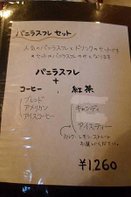 バニラスフレ セット
人気のバニラスフレとドリンクのセットです
バニラスフレ
+
コーヒー
紅茶
ブレンド
アメリカン
アイスコーヒー
キャンディ
アイスティー
ミルク・レモン・ストレート
¥1,260